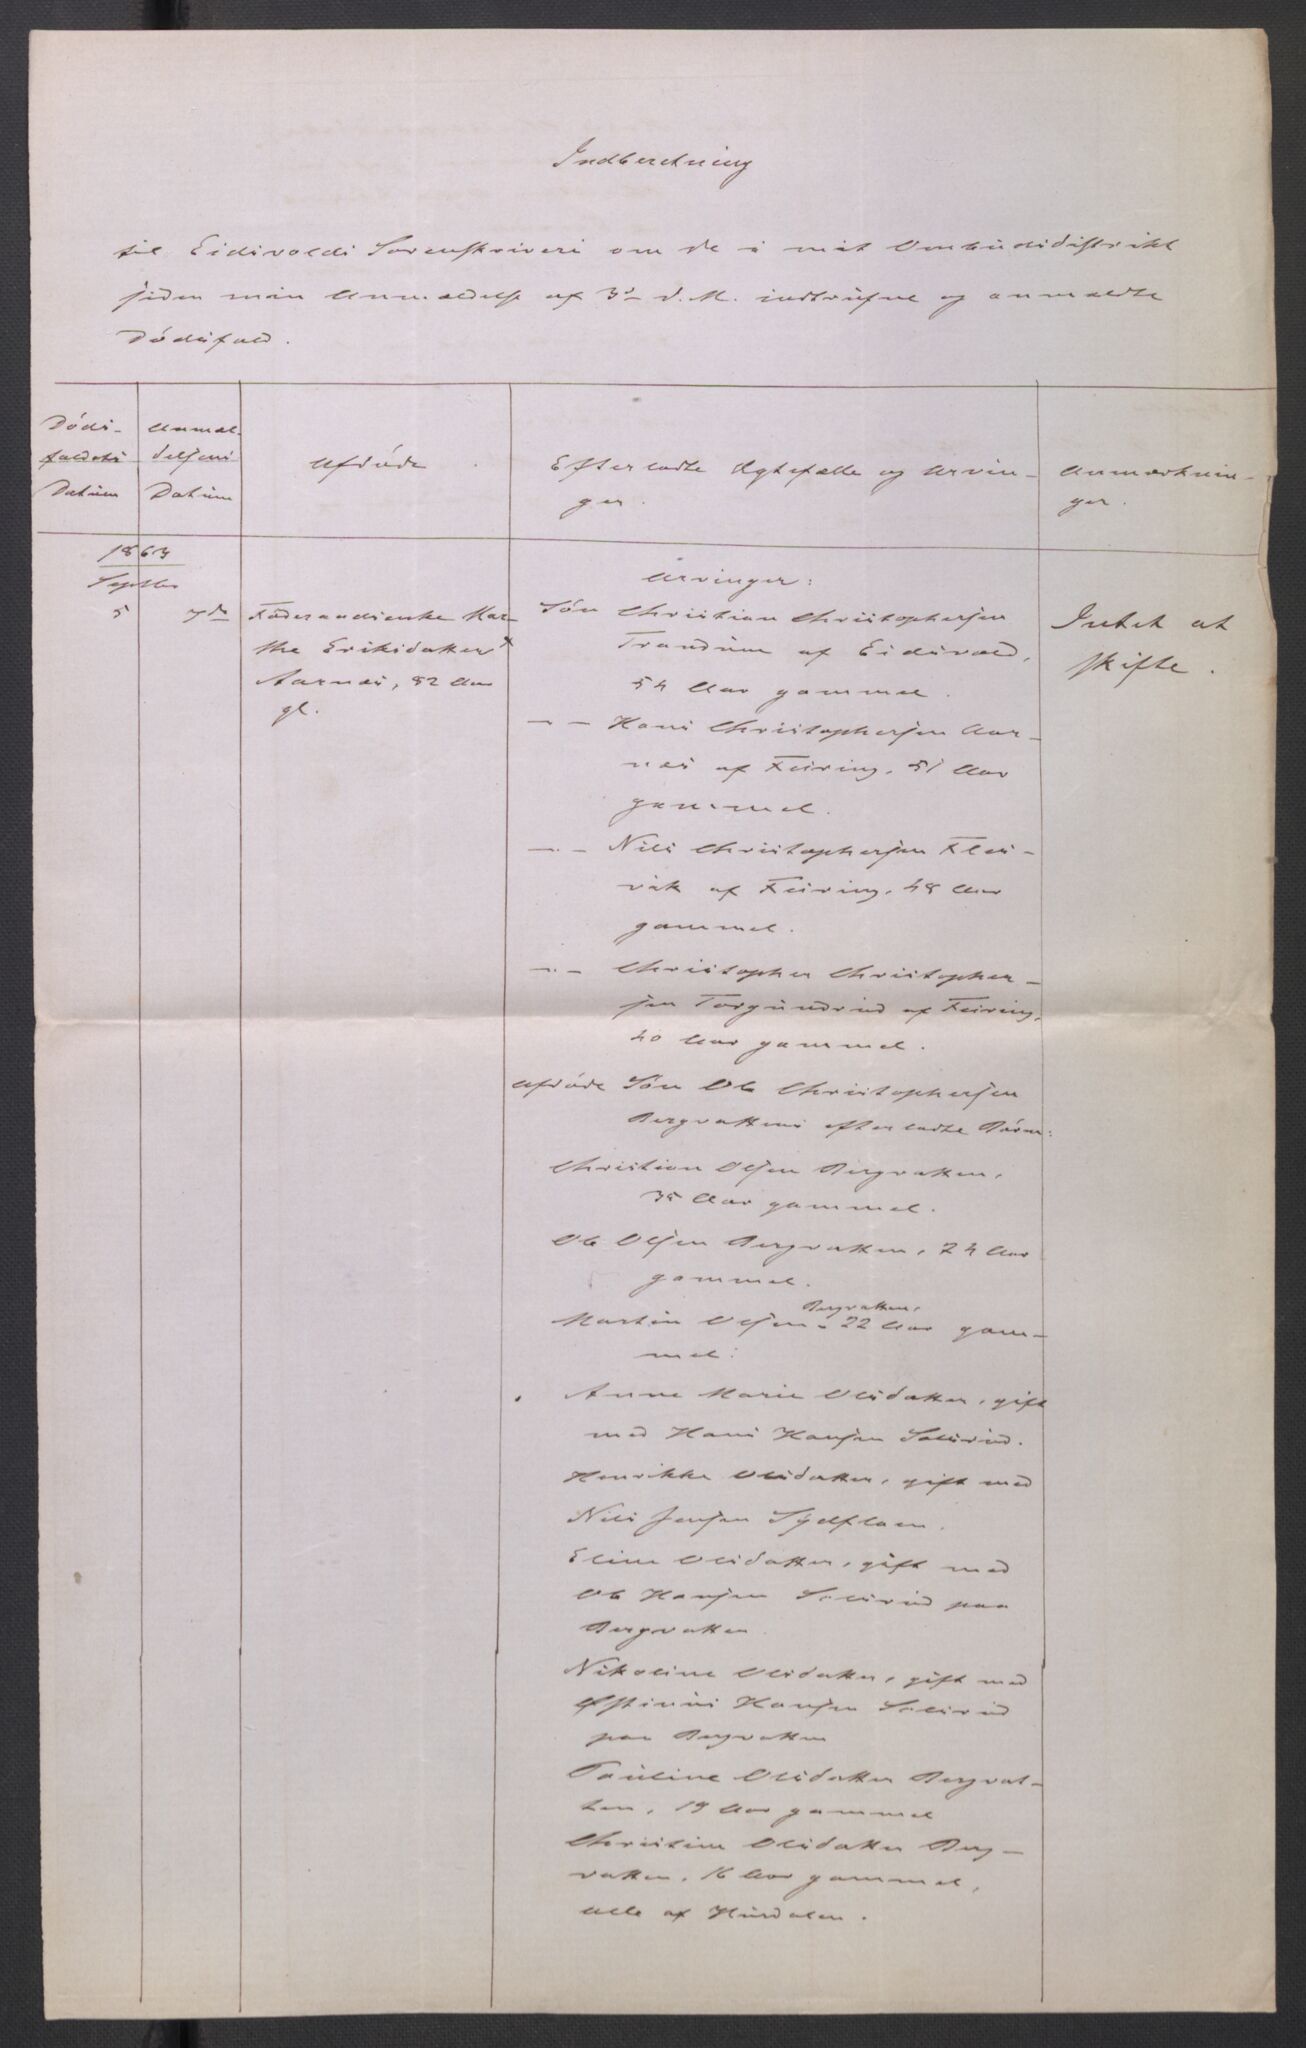 Indberetning
til Eidsvolds Sorenskriveri om de i mit Ombudsdistrikt
siden min Anmeldelse af 3d. d. M. indtrufne og anmeldte
Dödsfald.
Döds-
faldets
Datum
Anmel-
delsens
Datum
Afdöde
Efterladte Ægtefælle og Arvin-
ger.
Anmærknin-
ger.
1863
Septbr
5
7de
Föderaadsenke Mar-
the Eriksdatter
Aarnæs, 82 Aar
gl.
Arvinger:
Sön Christian Christophersen
Trandum af Eidsvold,
54 Aar gammel.
— " — Hans Christophersen Aar-
næs af Feiring, 51 Aar
gammel.
— " — Nils Christophersen Flæs-
vik af Feiring, 48 Aar
gammel.
— " — Christopher Christopher-
sen Torgundrud af Feiring,
40 Aar gammel.
Afdöde Sön Ole Christophersen
Bergvattens efterladte Börn:
Christian Olsen Bergvatten,
35 Aar gammel.
Ole Olsen Bergvatten, 24 Aar
gammel.
Bergvatten,
Martin Olsen 22 Aar gam-
mel.
Anne Marie Olsdatter, gift
med Hans Hansen
Henrikke Olsdatter, gift med
Nils Jensen
Eline Olsdatter, gift med
Ole Hansen paa
Bergvatten
Nikoline Olsdatter, gift med
Hansen
paa Bergvatten
Pauline Olsdatter Bergvat-
ten, 19 Aar gammel
Christine Olsdatter Berg-
vatten, 16 Aar gammel,
Alle af Hurdalen.
Intet at
skifte.